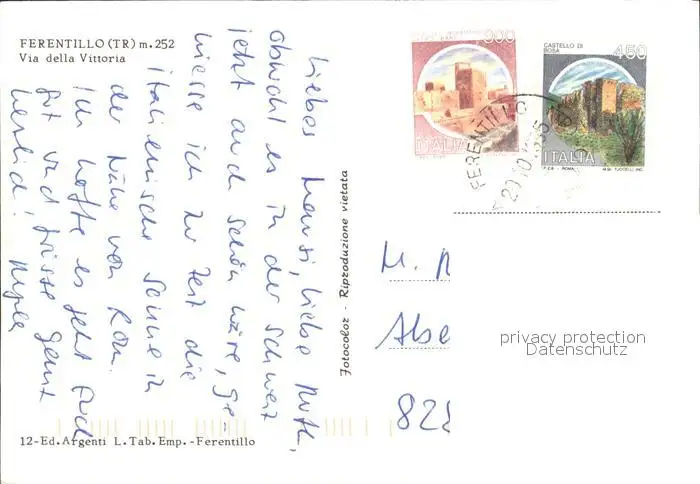 FERENTILLO (TR) m. 252
Via della Vittoria
Liebes Mausi, liebe Ruth,
obwohl es in der Schweiz
jetzt auch schön wäre, ge-
niesse ich zur Zeit die
italienische Sonne in
der Nähe von Rom.
Ich hoffe es geht Euch
gut und grüsse ganz
herzlich!
12-Ed. Argenti L. Tab. Emp. - Ferentillo
Fotocolor - Riproduzione vietata
ITALIA
CASTELLO DI
BOSA
450
ITALIA
FERENTILLO
M.
Abe
822
privacy protection
Datenschutz